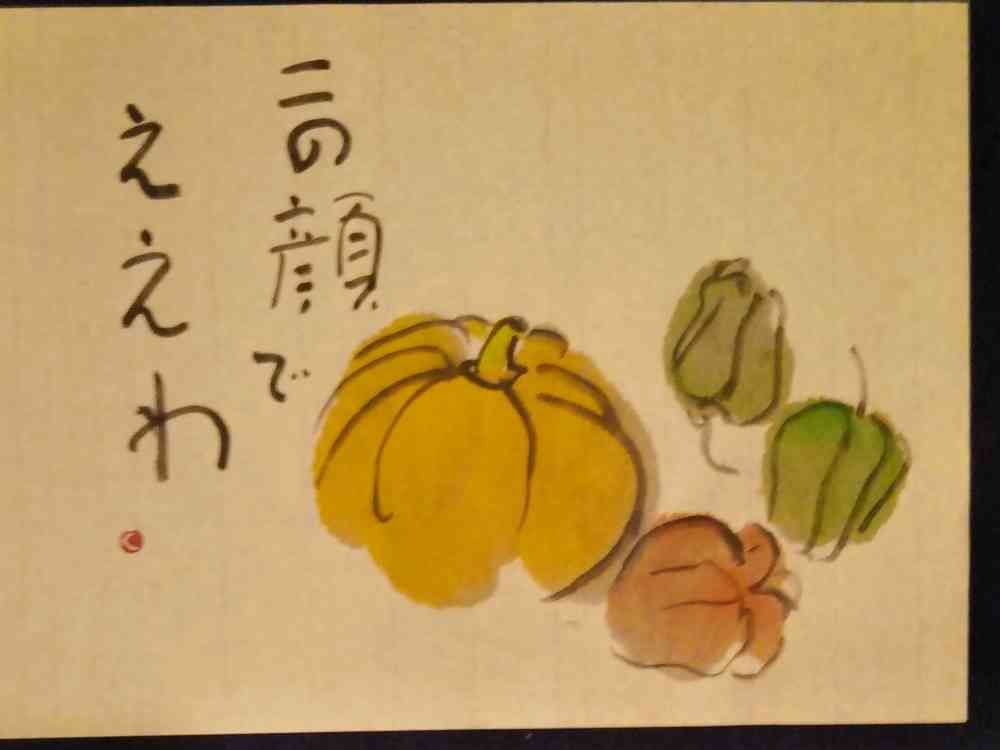 この顔で
ええわ
く